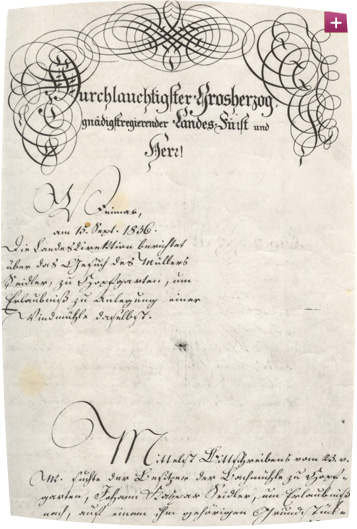 Durchlauchtigster Grosherzog
gnädigstregierender Landes-Fürst und
Herr!
Weimar,
am 15. Sept. 1836.
Die Landesdirektion berichtet
über das Gesuch des Müllers
Seidler, zu Hopfgarten, um
Erlaubniß zu Anlegung einer
Windmühle daselbst.
Mittelst Bittschreibens vom 23. v.
M. suchte der Besitzer der Bachmühle zu Hopf-
garten, Johann Caspar Seidler, um Erlaubniß
nach, auf einem ihm gehörigen Grund-Stück